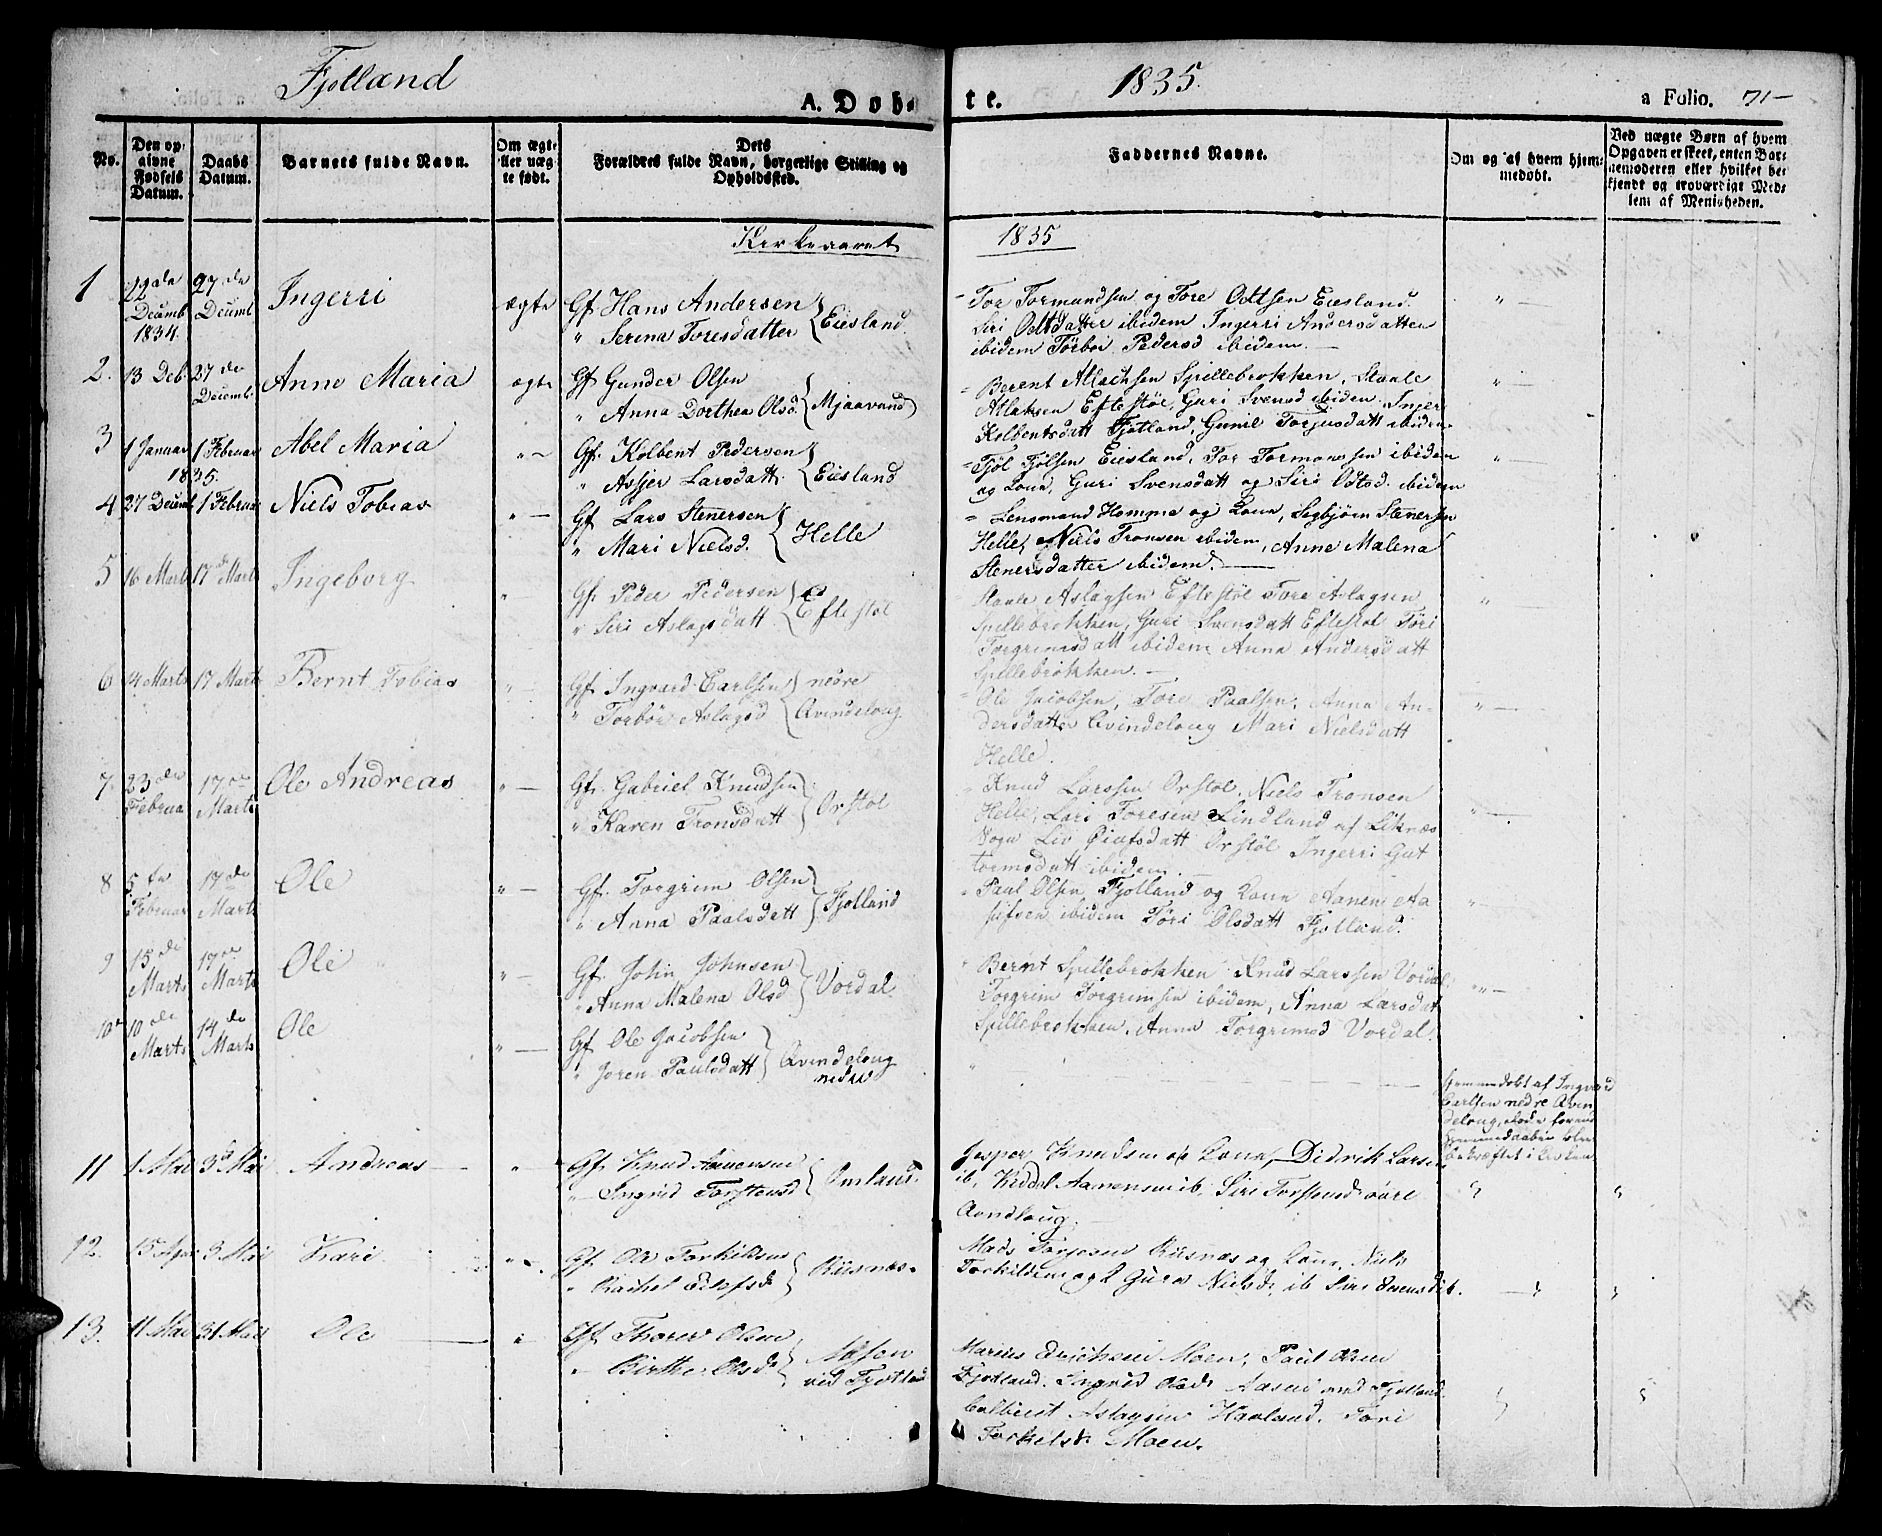 Fjotland
1835.
A. Døb-
te.
a Folio. 71-
No.
Den op-
givne
Fødsels
Datum.
Daabs
Datum.
Barnets fulde Navn.
Om ægte
eller uæg-
te født.
Dets
Forældres fulde Navn, borgerlige Stilling og
Opholdssted.
Faddernes Navne.
Om og af hvem hjem-
medøbt.
Ved uægte Børn af hvem
Opgaven er skeet, enten Bar-
nemoderen eller hvilket be-
kjendt og troværdigt Med-
lem af Menigheden.
Kirkeaaret
1835
1
22de
Decemb
1834.
27de
Decembr
Ingerri
ægte
Gf. Hans Andersen
" Serina Toresdatter
Eiesland.
Tor Tormundsen og Tore Odtsen Eiesland.
Siri Odtsdatter ibidem Ingerri Andersdatter
ibidem Törbor Pedersd ibidem.
" —
2.
13 Deb.
27de
Decemb.
Anne Maria
ægte
Gf Gunder Olsen
" Anna Dorthea Olsd.
Mjaavand
Berent Atlachsen Spillebrokken, Staale
Atlaksen Eftestöl, Guri Svensd ibidem. Inger
Kolbentsdatt Fjotland, Gunil Torjusdatt ibidem.
" —
3
1 Januar
1835.
1 Februar
Abel Maria
" —
Gf. Kolbent Pedersen
" Assjer Larsdatt.
Eiesland
Fjöl Fjölsen Eiesland, Tor Tormonssen ibidem
og Kone, Guri Svensdatt og Siri Odtsd. ibidem
" —
4
27 Decemb.
1 Februar
Niels Tobias
" —
Gf Lars Stenersen
" Mari Nielsd.
Helle
Lensmand Homme og Kone, Segbjörn Stenersen
Helle, og Niels Tronsen ibidem, Anne Malena
Stenersdatter ibidem.
5
16 Marts
17de Marts
Ingeborg
" —
Gf. Peder Pedersen
" Siri Aslagsdatt.
Eftestöl
Staale Aslagsen Eftestöl Tore Aslagsen
Spillebrokken, Guri Svensdatt Eftestöl Töri
Torgrimsdatt ibidem Anna Andersdatt
Spillebrokken. —
"
6
14 Marts
17 Marts
Bernt Tobias
" —
Gf. Ingvard Carlsen
" Torbör Aslagsd
nedre
Qvindeloug
Ole Jacobsen, Tore Paalsen, Anna An-
dersdatter Qvindeloug Mari Nielsdatt
Helle.
" —
7
23de
Februar
17de
Marts
Ole Andreas
" —
Gf. Gabriel Knudsen
" Karen Tronsdatt
Orstöl
Knud Larssen Orstöl, Niels Tronsen
Helle, Lars Toresen Lindland af Liknæs
Sogn Liv Oiafsdatt Orstöl Ingerri Gut
tormsdatt ibidem. —
" —
8
5te
Februar
17de
Marts
Ole
" —
Gf. Torgrim Olsen
" Anna Paalsdatt
Fjotland
Paul Olsen Fjotland og Kone Aanen Aa
sulfsen ibidem Töri Olsdatt Fjotland.
" —
9
15de
Marts
17de
Marts
Ole
" —
Gf. John Johnsen
" Anna Malena Olsd
Vordal
Bernt Spillebrokken Knud Larssen Vordal,
Torgrim Torgrimsen ibidem, Anna Larsdat
Spillebrokken, Anna Torgrimsd Vordal.
" —
10
10de
Marts
14de
Marts
Ole
" —
Gf. Ole Jacobsen
" Joren Paulsdatt
Qvindeloug
nedre
Hjemmedöbt af Ingvard
Carlsen nedre Qvin
deloug,
Hjemmedaaben blev
bekræftet i Kirken
11
1 Mai
3de Mai
Andreas
"
Gf. Knud Aanensen
" Ingrid Torstensd
Omland.
Jesper Knudsen og Kone, Didrik Larsen
ib, Keddel Aanensen ib. Siri Torstensd. övre
Qvindloug.
"
"
12.
15 April
3 Mai
Kari
" —
Gf. Ole Torkilsen
" Rachel Edlefsd.
Risnæs.
Mads Torjesen Risnæs og Kone, Niels
Torkildsen og Guro Nielsd. ib Siri Svensd. ib.
"
"
13.
11 Mai
31 Mai
Ole
"
Gf. Thorer Olsen
" Birthe Olsd.
Aasen
ved Fjotland
Marius Erichsen Moen, Paul Olsen
Fjotland. Ingrid Olsd. Aasen ved Fjotland.
Colbent Aslagsen Haaland. Tori
Torkelsd. Moen.
"
"